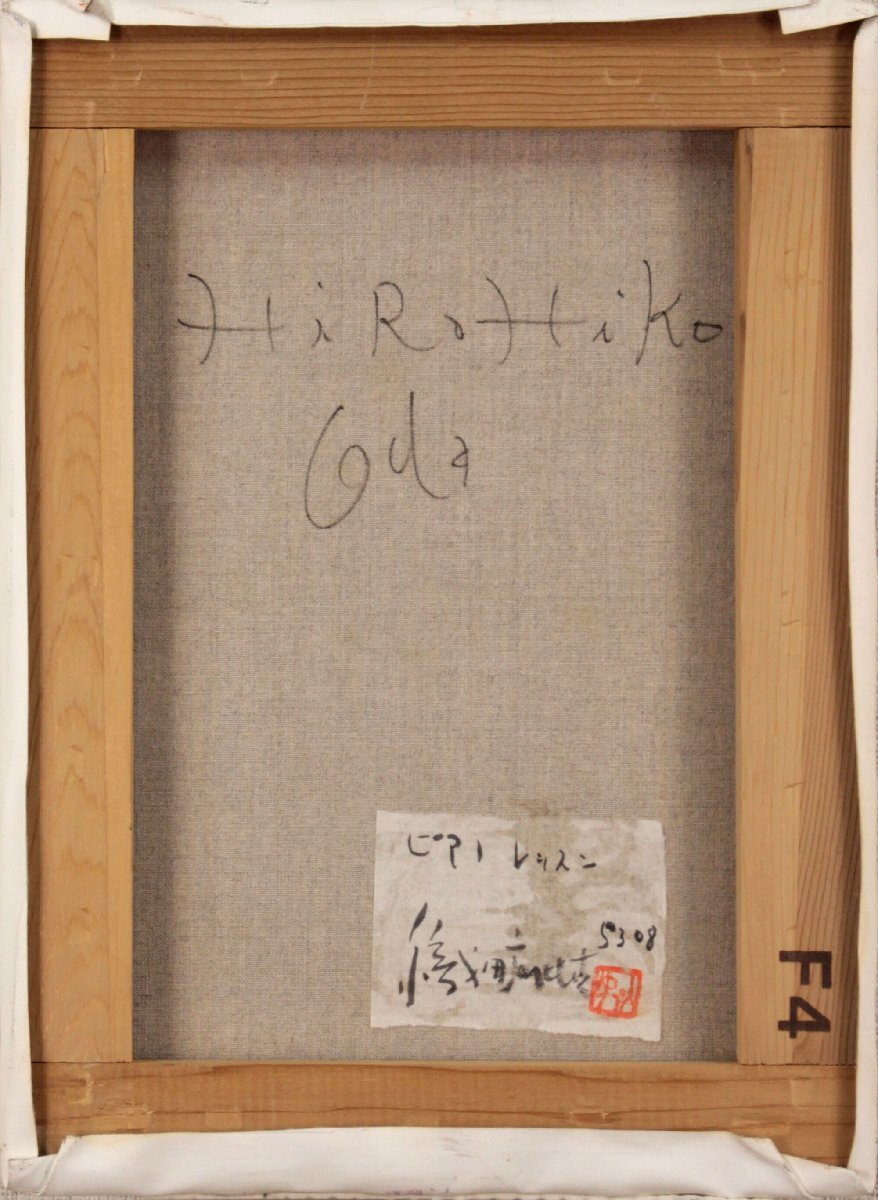 HiRoHiKo
Oda
ピアノ レッスン
5308
織田廣比古
F4